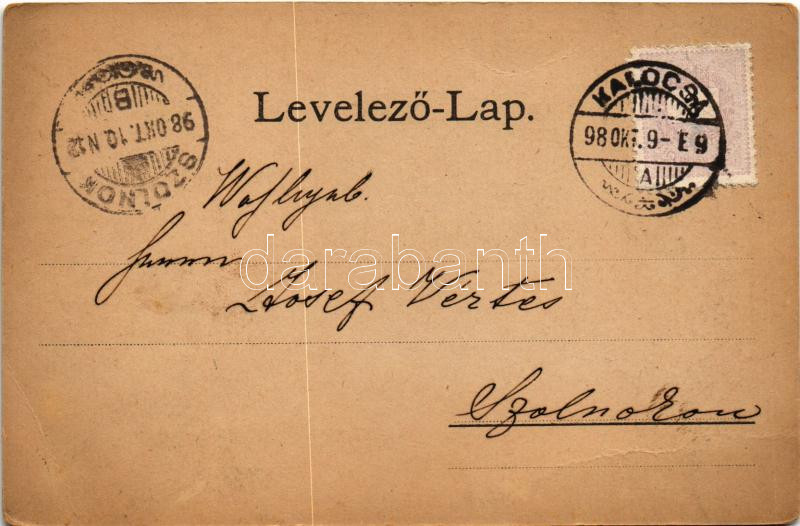 Levelező-Lap.
KALOCSA
98 OKT. 9 - E 9
A
SZOLNOK
98 OKT. 10. N 12
B
Wohlgeb.
Herrn
Josef Vertes
Szolnokon
darabanth